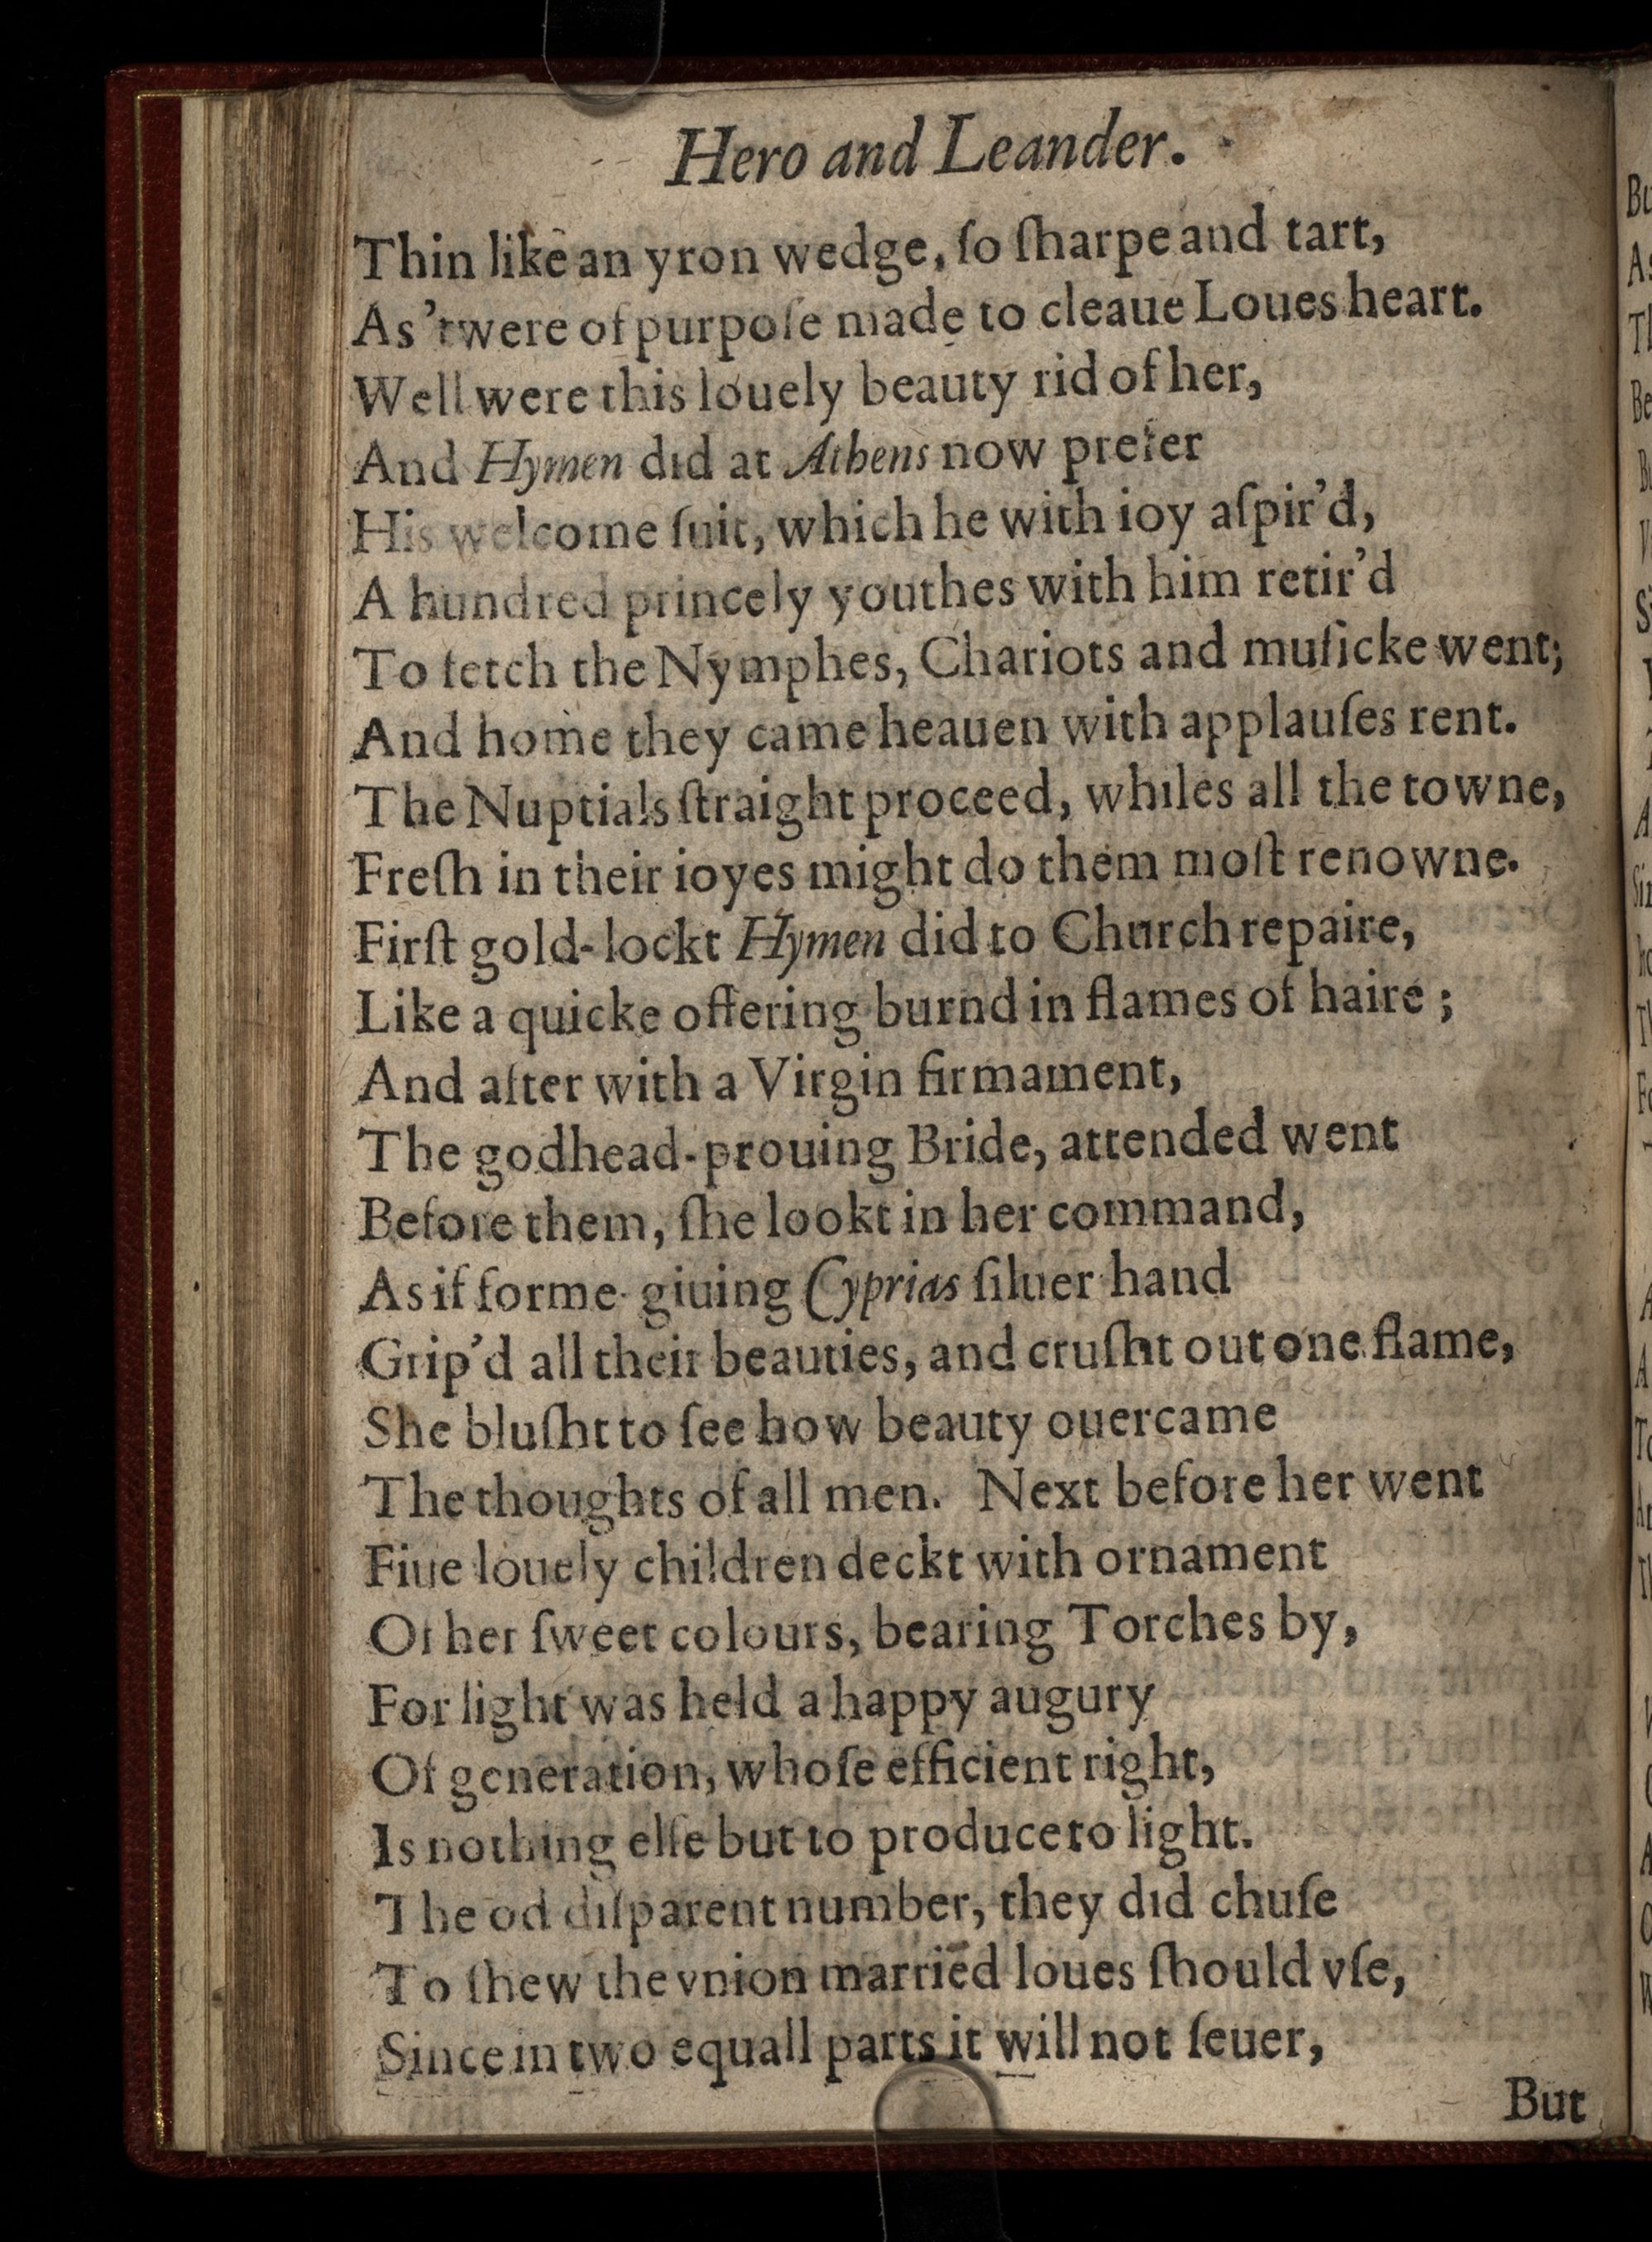 Hero and Leander.
Thin like an yron wedge, ſo ſharpe and tart,
As 'twere of purpoſe made to cleaue Loues heart.
Well were this louely beauty rid of her,
And Hymen did at Athens now prefer
His welcome ſuit, which he with ioy aſpir'd,
A hundred princely youthes with him retir'd
To fetch the Nymphes, Chariots and muſicke went;
And home they came heauen with applauſes rent.
The Nuptials ſtraight proceed, whiles all the towne,
Freſh in their ioyes might do them moſt renowne.
Firſt gold-lockt Hymen did to Church repaire,
Like a quicke offering burnd in flames of haire;
And after with a Virgin firmament,
The godhead-prouing Bride, attended went
Before them, ſhe lookt in her command,
As if forme-giuing Cyprias ſiluer hand
Grip'd all their beauties, and cruſht out one flame,
She bluſht to ſee how beauty ouercame
The thoughts of all men. Next before her went
Fiue louely children deckt with ornament
Of her ſweet colours, bearing Torches by,
For light was held a happy augury
Of generation, whoſe efficient right,
Is nothing elſe but to produce to light.
The od diſparent number, they did chuſe
To ſhew the vnion married loues ſhould vſe,
Since in two equall parts it will not ſeuer,
But